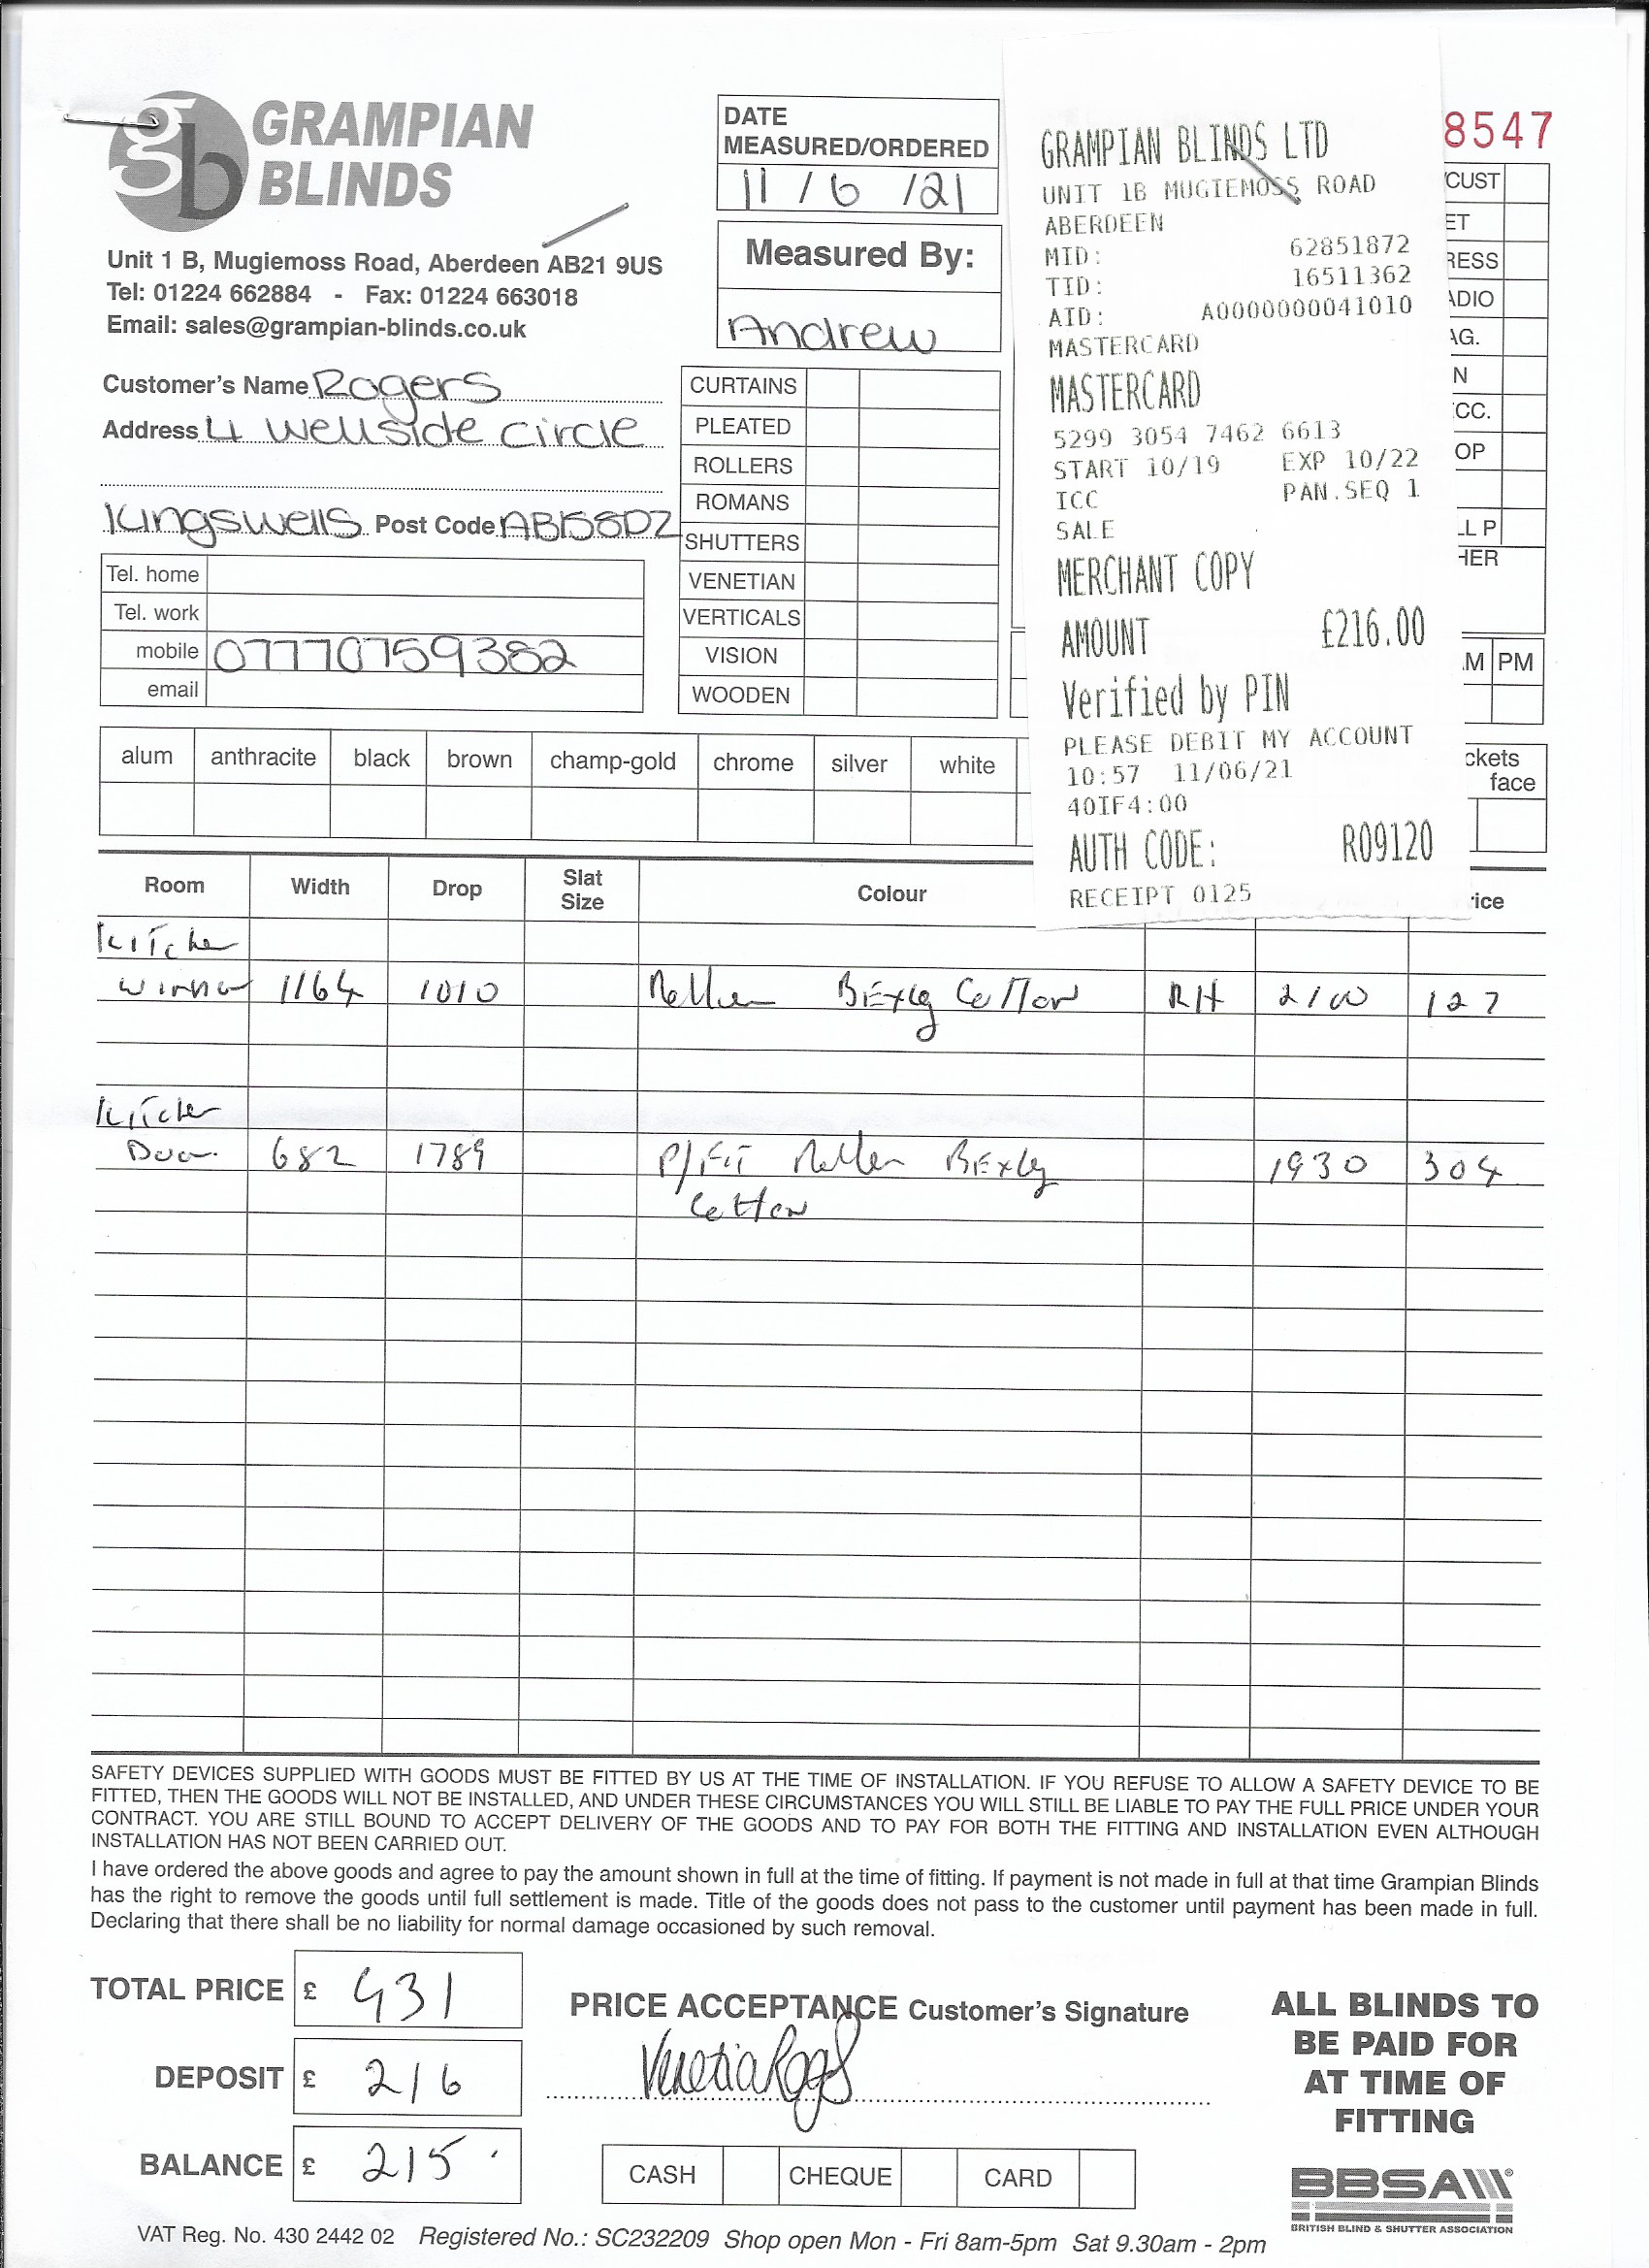 GRAMPIAN
BLINDS
Unit 1 B, Mugiemoss Road, Aberdeen AB21 9US
Tel: 01224 662884 - Fax: 01224 663018
Email: sales@grampian-blinds.co.uk
DATE
MEASURED/ORDERED
11 / 6 /21
Measured By:
Andrew
8547
GRAMPIAN BLINDS LTD
UNIT 1B MUGIEMOSS ROAD
ABERDEEN
MID: 62851872
TID: 16511362
AID: A0000000041010
MASTERCARD
MASTERCARD
5299 3054 7462 6613
START 10/19 EXP 10/22
ICC PAN.SEQ 1
SALE
MERCHANT COPY
AMOUNT £216.00
Verified by PIN
PLEASE DEBIT MY ACCOUNT
10:57 11/06/21
40IF4:00
AUTH CODE: R09120
RECEIPT 0125
/CUST
ET
RESS
ADIO
AG.
N
CC.
OP
LL P
HER
M PM
ckets
face
Customer's Name Rogers
Address 4 Wellside Circle
Kingswells Post Code AB158DZ
Tel. home
Tel. work
mobile 07770759382
email
CURTAINS
PLEATED
ROLLERS
ROMANS
SHUTTERS
VENETIAN
VERTICALS
VISION
WOODEN
alum anthracite black brown champ-gold chrome silver white
Room Width Drop Slat Size Colour rice
Kitchen
Window 1164 1010 Roller Bexley Cotton RH 2100 127
Kitchen
Door 682 1789 P/Fit Roller Bexley 1930 304
Cotton
SAFETY DEVICES SUPPLIED WITH GOODS MUST BE FITTED BY US AT THE TIME OF INSTALLATION. IF YOU REFUSE TO ALLOW A SAFETY DEVICE TO BE
FITTED, THEN THE GOODS WILL NOT BE INSTALLED, AND UNDER THESE CIRCUMSTANCES YOU WILL STILL BE LIABLE TO PAY THE FULL PRICE UNDER YOUR
CONTRACT. YOU ARE STILL BOUND TO ACCEPT DELIVERY OF THE GOODS AND TO PAY FOR BOTH THE FITTING AND INSTALLATION EVEN ALTHOUGH
INSTALLATION HAS NOT BEEN CARRIED OUT.
I have ordered the above goods and agree to pay the amount shown in full at the time of fitting. If payment is not made in full at that time Grampian Blinds
has the right to remove the goods until full settlement is made. Title of the goods does not pass to the customer until payment has been made in full.
Declaring that there shall be no liability for normal damage occasioned by such removal.
TOTAL PRICE £ 431
DEPOSIT £ 216
BALANCE £ 215
PRICE ACCEPTANCE Customer's Signature
Venetia Rogers
CASH CHEQUE CARD
ALL BLINDS TO
BE PAID FOR
AT TIME OF
FITTING
BBSA
BRITISH BLIND & SHUTTER ASSOCIATION
VAT Reg. No. 430 2442 02 Registered No.: SC232209 Shop open Mon - Fri 8am-5pm Sat 9.30am - 2pm